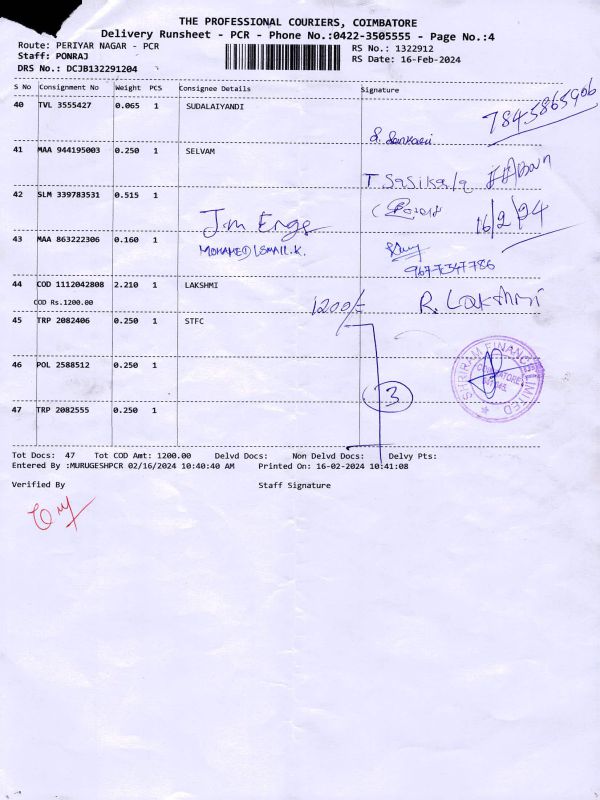 THE PROFESSIONAL COURIERS, COIMBATORE
Delivery Runsheet - PCR - Phone No.:0422-3505555 - Page No.:4
Route: PERIYAR NAGAR - PCR
RS No.: 1322912
Staff: PONRAJ
RS Date: 16-Feb-2024
DRS No.: DCJB132291204
S No Consignment No Weight PCS Consignee Details Signature
40 TVL 3555427 0.065 1 SUDALAIYANDI
7845865906
S. Sankari
41 MAA 944195003 0.250 1 SELVAM
T Sasikala
42 SLM 339783531 0.515 1
16/2/24
Jm Engg
43 MAA 863222306 0.160 1 MOHAMED ISMAIL.K.
9677347786
44 COD 1112042808 2.210 1 LAKSHMI
COD Rs.1200.00
1200/- R. Lakshmi
45 TRP 2082406 0.250 1 STFC
46 POL 2588512 0.250 1
SHRIRAM FINANCE LIMITED
COIMBATORE
3
47 TRP 2082555 0.250 1
Tot Docs: 47 Tot COD Amt: 1200.00 Delvd Docs: Non Delvd Docs: Delvy Pts:
Entered By :MURUGESHPCR 02/16/2024 10:40:40 AM Printed On: 16-02-2024 10:41:08
Verified By Staff Signature